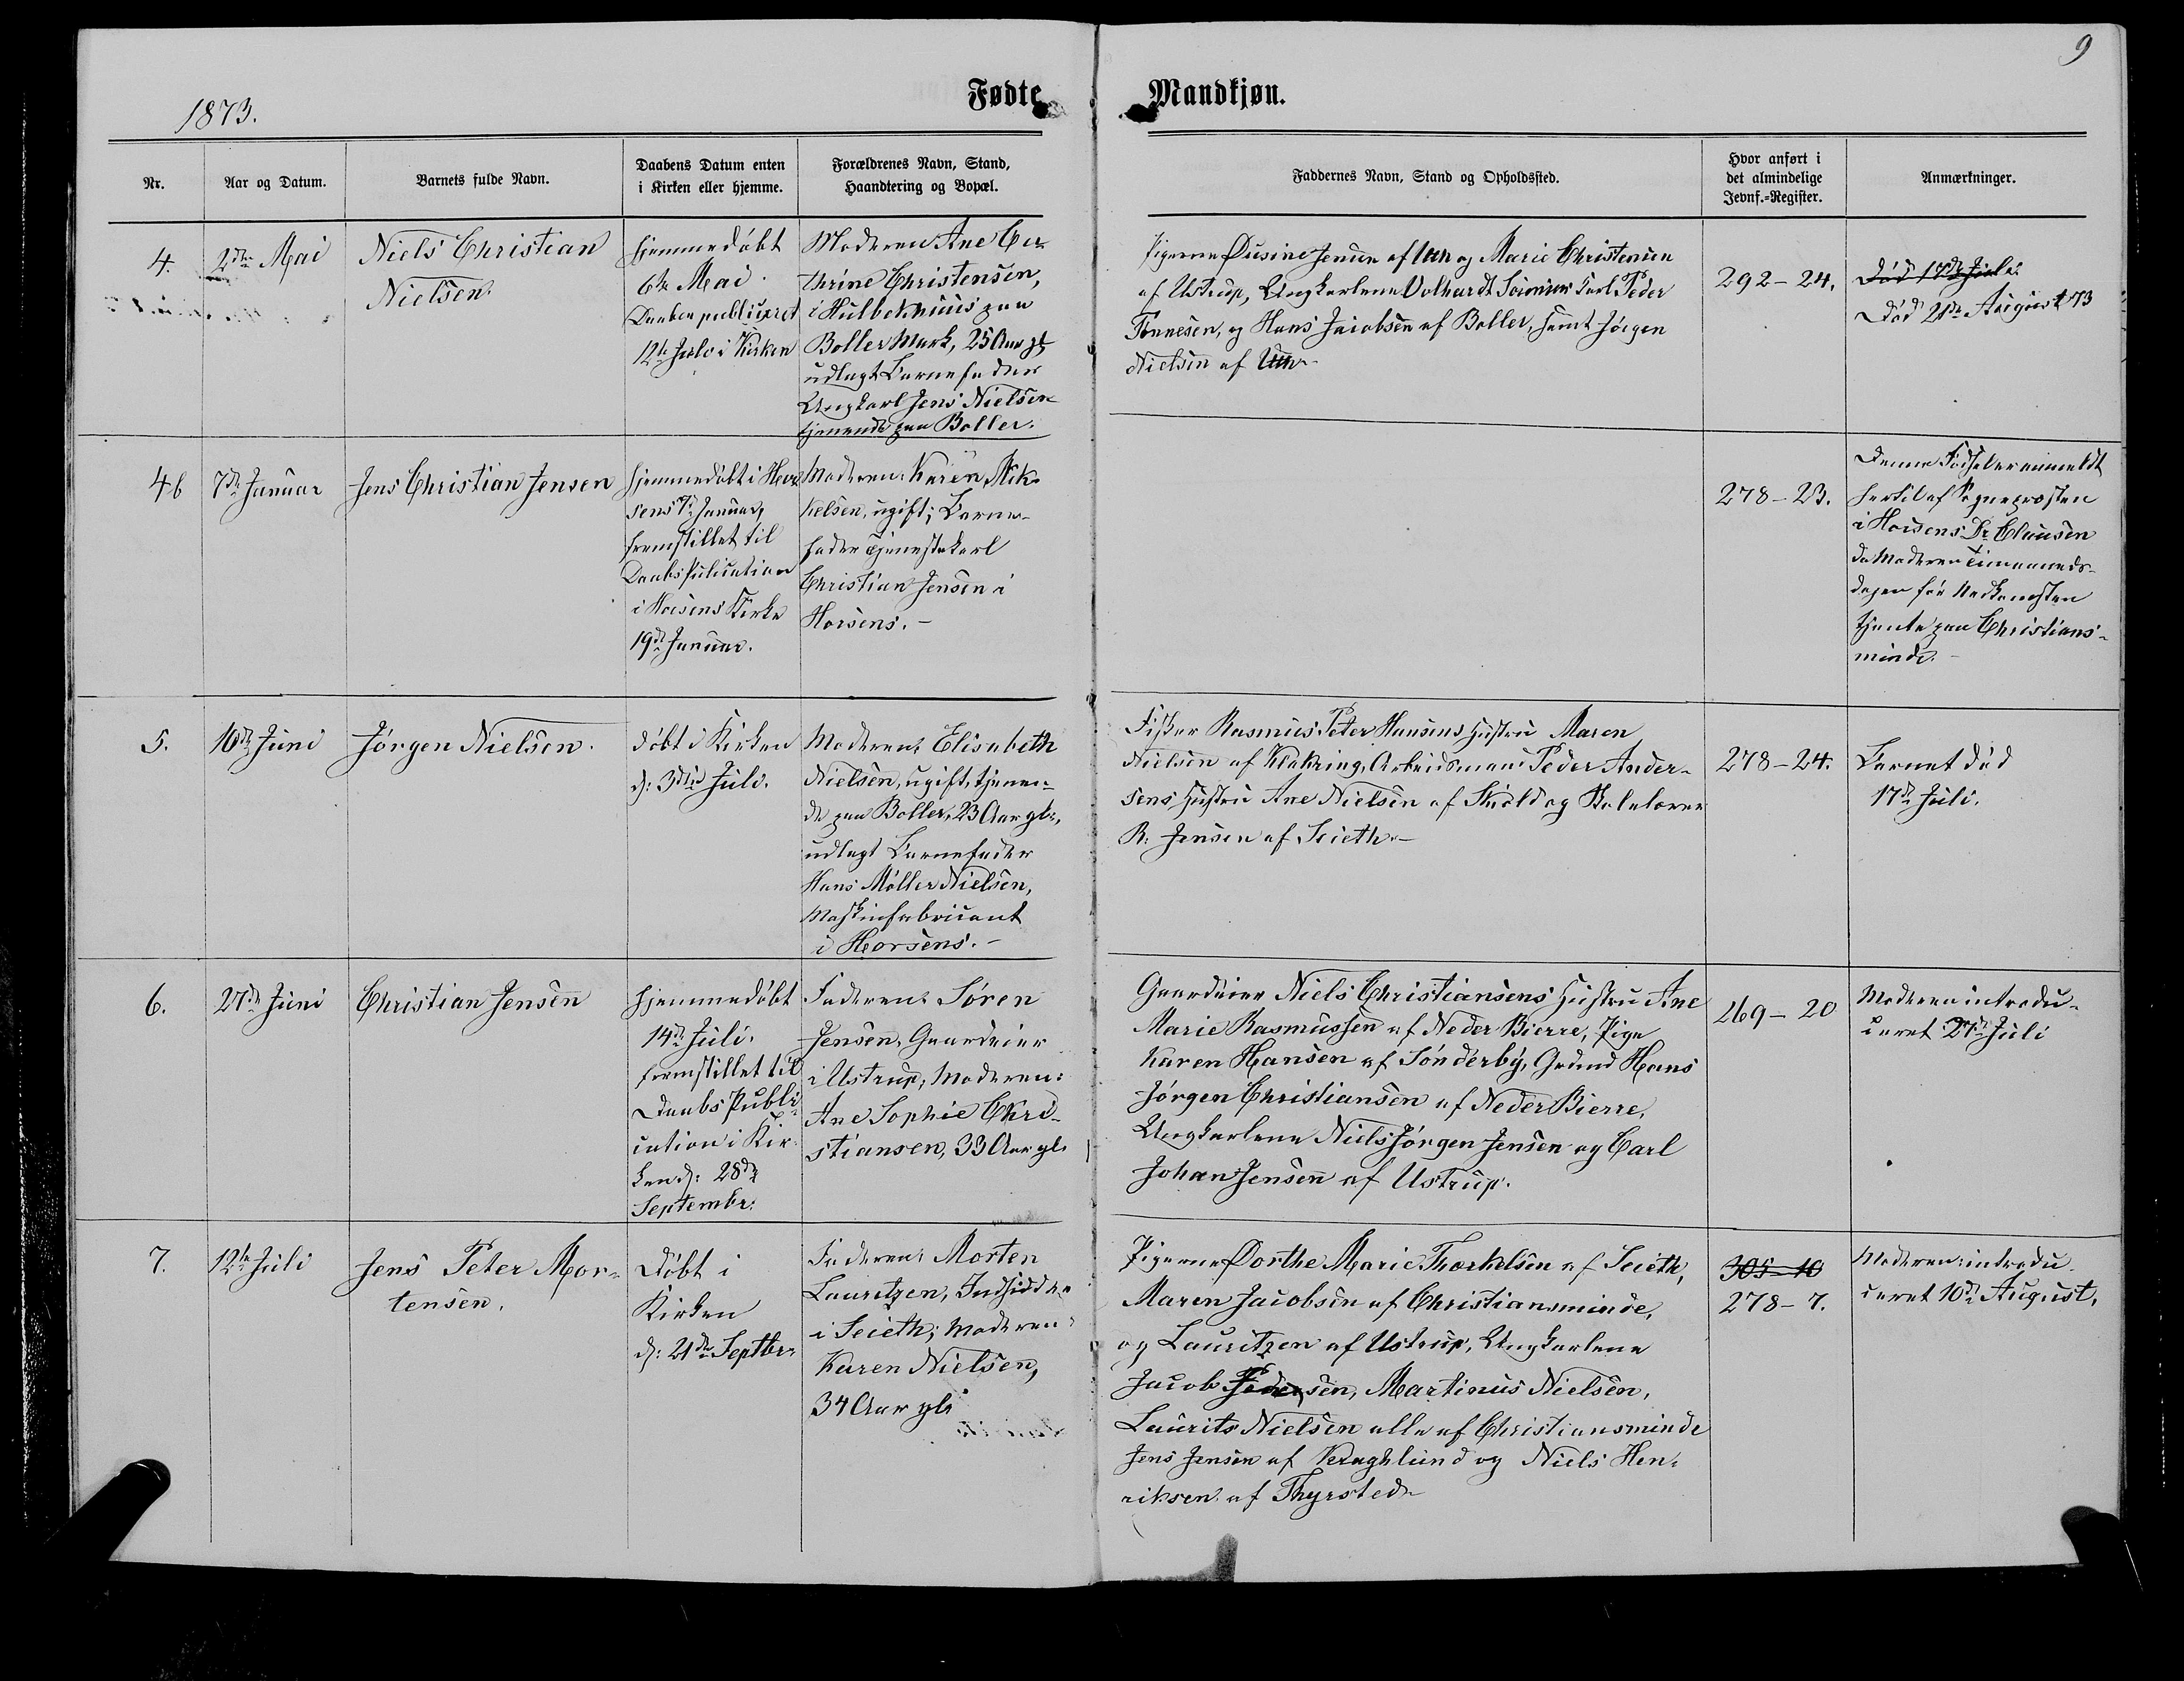 9
Fødte Mandkjøn.
1873.
Nr.
Aar og Datum.
Barnets fulde Navn.
Daabens Datum enten
i Kirken eller hjemme.
Forældrenes Navn, Stand,
Haandtering og Bopæl.
Faddernes Navn, Stand og Opholdssted.
Hvor anført i
det almindelige
Jevnf.-Register.
Anmærkninger.
4.
2den Mai
Niels Christian
Nielsen.
hjemmedøbt
6te Mai.
Daaben publiceret
12te Julii i Kirken
Moderen Ane Ca-
thrine Christensen,
i Hulbekhuus paa
Boller Mark, 25 Aar gl,
udlagt Barnefader
Ungkarl Jens Nielsen
tjenende paa Boller.
Pigerne Jensen af Uth og Marie Christensen
af Ustrup, Ungkarlene Volhardt Peder
Tønnesen, og Hans Jacobsen af Boller, samt Jørgen
Nielsen af Uth
292-24.
Død 17de Juli
Død 21de August 73
4b
7de Januar
Jens Christian Jensen
hjemmedøbt i Hor-
sens 7de Januar,
fremstillet til
Daabs Publication
i Horsens Kirke
19de Januar.
Moderen: Karen Mik-
kelsen, ugift; Barne-
fader Tjenestekarl
Christian Jensen i
Horsens.-
278-23.
Denne Fødsel er anmeldt
hertil af Sogneprosten
i Horsens Dr Clausen
da Moderen Timaaneds-
dagen før Nedkomsten
tjente paa Christians-
minde.-
5.
10de Juni
Jørgen Nielsen.
døbt i Kirken
d: 3die Juli.
Moderen: Elisabeth
Nielsen, ugift, tjenen-
de paa Boller, 23 Aar gl.,
udlagt Barnefader
Hans Møller Nielsen,
Maskinfabricant
i Horsens.-
Fisker Rasmus Peter Hansens Hustru Maren
Nielsen af Klakring, Arbeidsmand Peder Ander-
sens Hustru Ane Nielsen af Skiold og Skolelærer
R. Jensen af Seieth.-
278-24.
Barnet død
17de Juli.
6.
27de Juni
Christian Jensen
hjemmedøbt
14de Juli.
fremstillet til
Daabs Publi-
cation i Kir-
ken d: 28de
Septembr.
Faderen: Søren
Jensen, Gaardeier
i Ustrup, Moderen:
Ane Sophie Chri-
stiansen, 33 Aar gl.
Gaardeier Niels Christiansens Hustru Ane
Marie Rasmussen af Neder Bierre, Pige
Karen Hansen af Sønderby, Grmd Hans
Jørgen Christiansen af Neder Bierre,
Ungkarlene Niels Jørgen Jensen og Carl
Johan Jensen af Ustrup.
269-20
Moderen introdu-
ceret 27de Juli
7.
12te Juli
Jens Peter Mor-
tensen.
Døbt i
Kirken
d: 21de Septbr.
Faderen: Morten
Lauritzen, Indsidder
i Seieth; Moderen:
Karen Nielsen,
34 Aar gl.
Pigerne Dorthe Marie Thorkelsen af Seieth,
Maren Jacobsen af Christiansminde,
og Lauritzen af Ustrup, Ungkarlene
Jacob Pedersen, Martinus Nielsen,
Laurits Nielsen alle af Christiansminde
Jens Jensen af Kraghlund og Niels Hen-
riksen af Thyrsted
305-10
278-7.
Moderen introdu-
ceret 10de August.